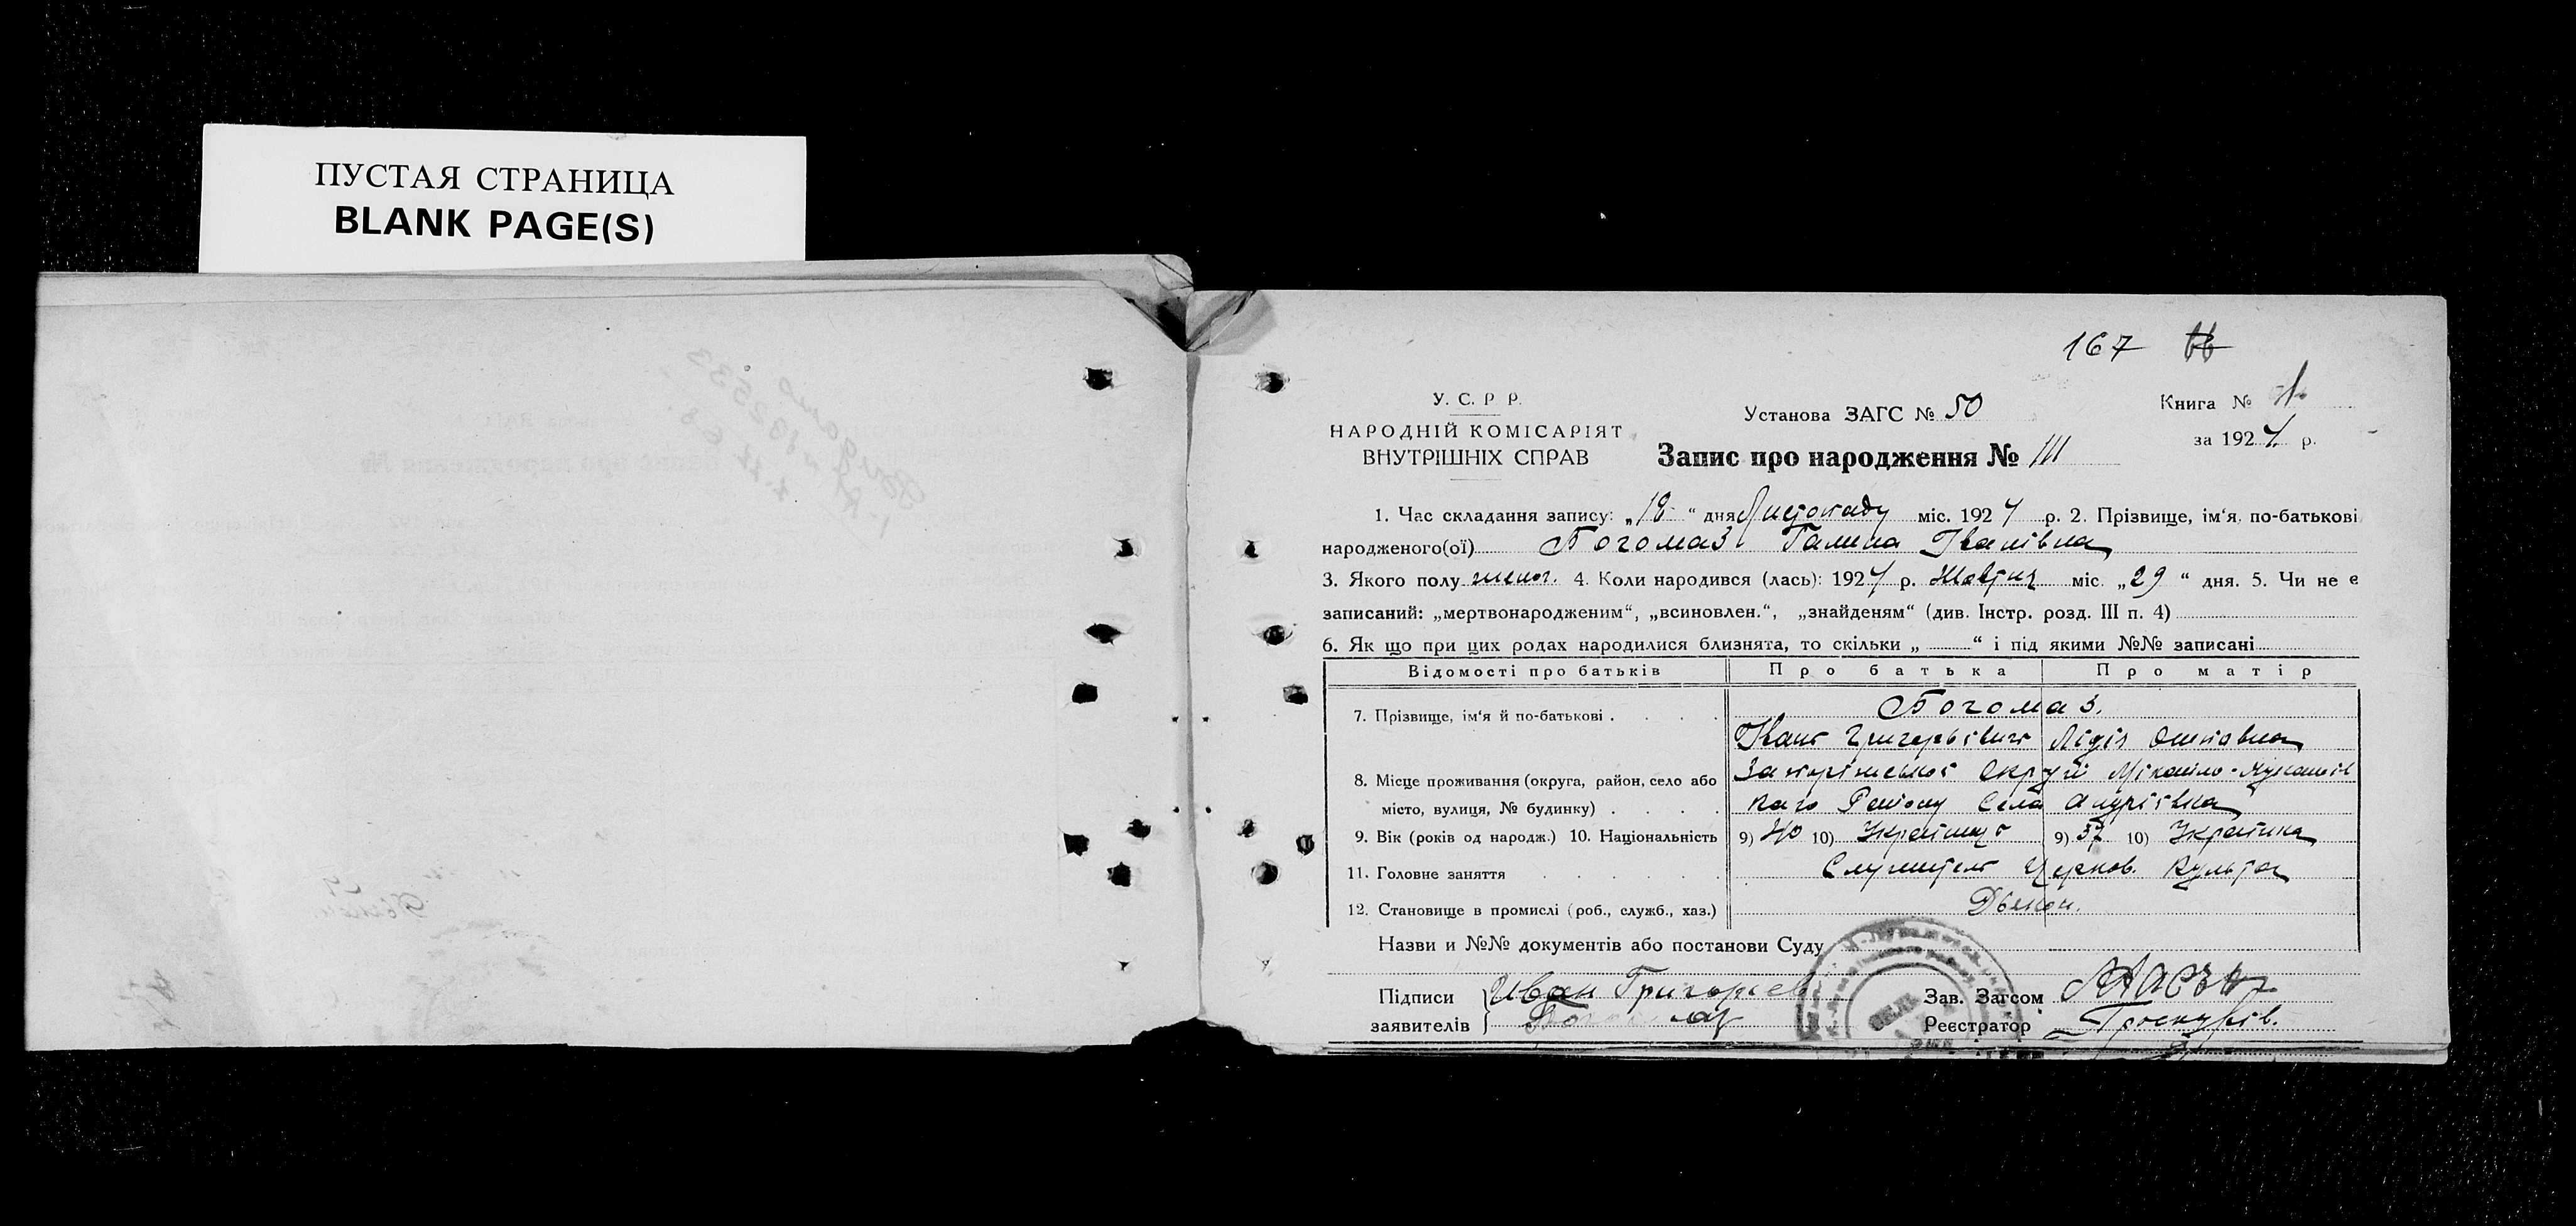 ПУСТАЯ СТРАНИЦА
BLANK PAGE(S)
167
У. С. Р. Р.
НАРОДНІЙ КОМІСАРІЯТ
ВНУТРІШНІХ СПРАВ
Установа ЗАГС № 50
Запис про народження № 111
Книга №
за 1927 р.
1. Час складання запису: „18“ дня Листопаду міс. 1927 р. 2. Прізвище, ім‘я, по-батькові
народженого(ої) Богомаз Галина Іванівна
3. Якого полу жіноч. 4. Коли народився (лась): 1927 р. Жовтня міс. „29“ дня. 5. Чи не є
записаний: „мертвонародженим“, „всиновлен.“, „знайденям“ (див. Інстр. розд. III п. 4)
6. Як що при цих родах народилися близнята, то скільки „ “ і під якими №№ записані
Відомості про батьків Про батька Про матір
7. Прізвище, ім‘я й по-батькові . . . . Богомаз.
Іван Григорьевич Лідія
8. Місце проживання (округа, район, село або Запоріжської Округи Міхайло-Лукашів
місто, вулиця, № будинку) . . . . кого Району Село Андріївка
9. Вік (років од народж.) 10. Національність 9) 40 10) Українець 9) 37 10) Українка
11. Головне заняття . . . . . . Служитель Церков. Культа
12. Становище в промислі (роб., служб., хаз.) Дьякон.
Назви и №№ документів або постанови Суду
Підписи Иван Григорьев
заявителів Богомаз
Зав. Загсом
Реєстратор Проскурів.